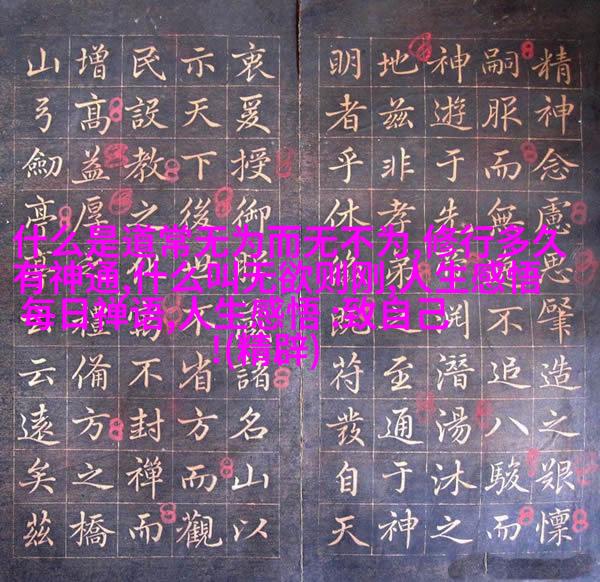 精神念慮思肇造之艱懍
嗣服而無不追八駿而
神遊于先潛湯沐之
地茲非孝弟至通于神
明者乎休既符發自天
衷爰授御諸名山以
示天下後世省方而觀
民設教之不封禪而
增高益厚禮備方之橋
山弓劍亭云遠矣茲
什么是道常无为而无不为,修行多久
有神通,什么叫无欲则刚,人生感悟
每日禅语,人生感悟 :致自己
!(精辟)